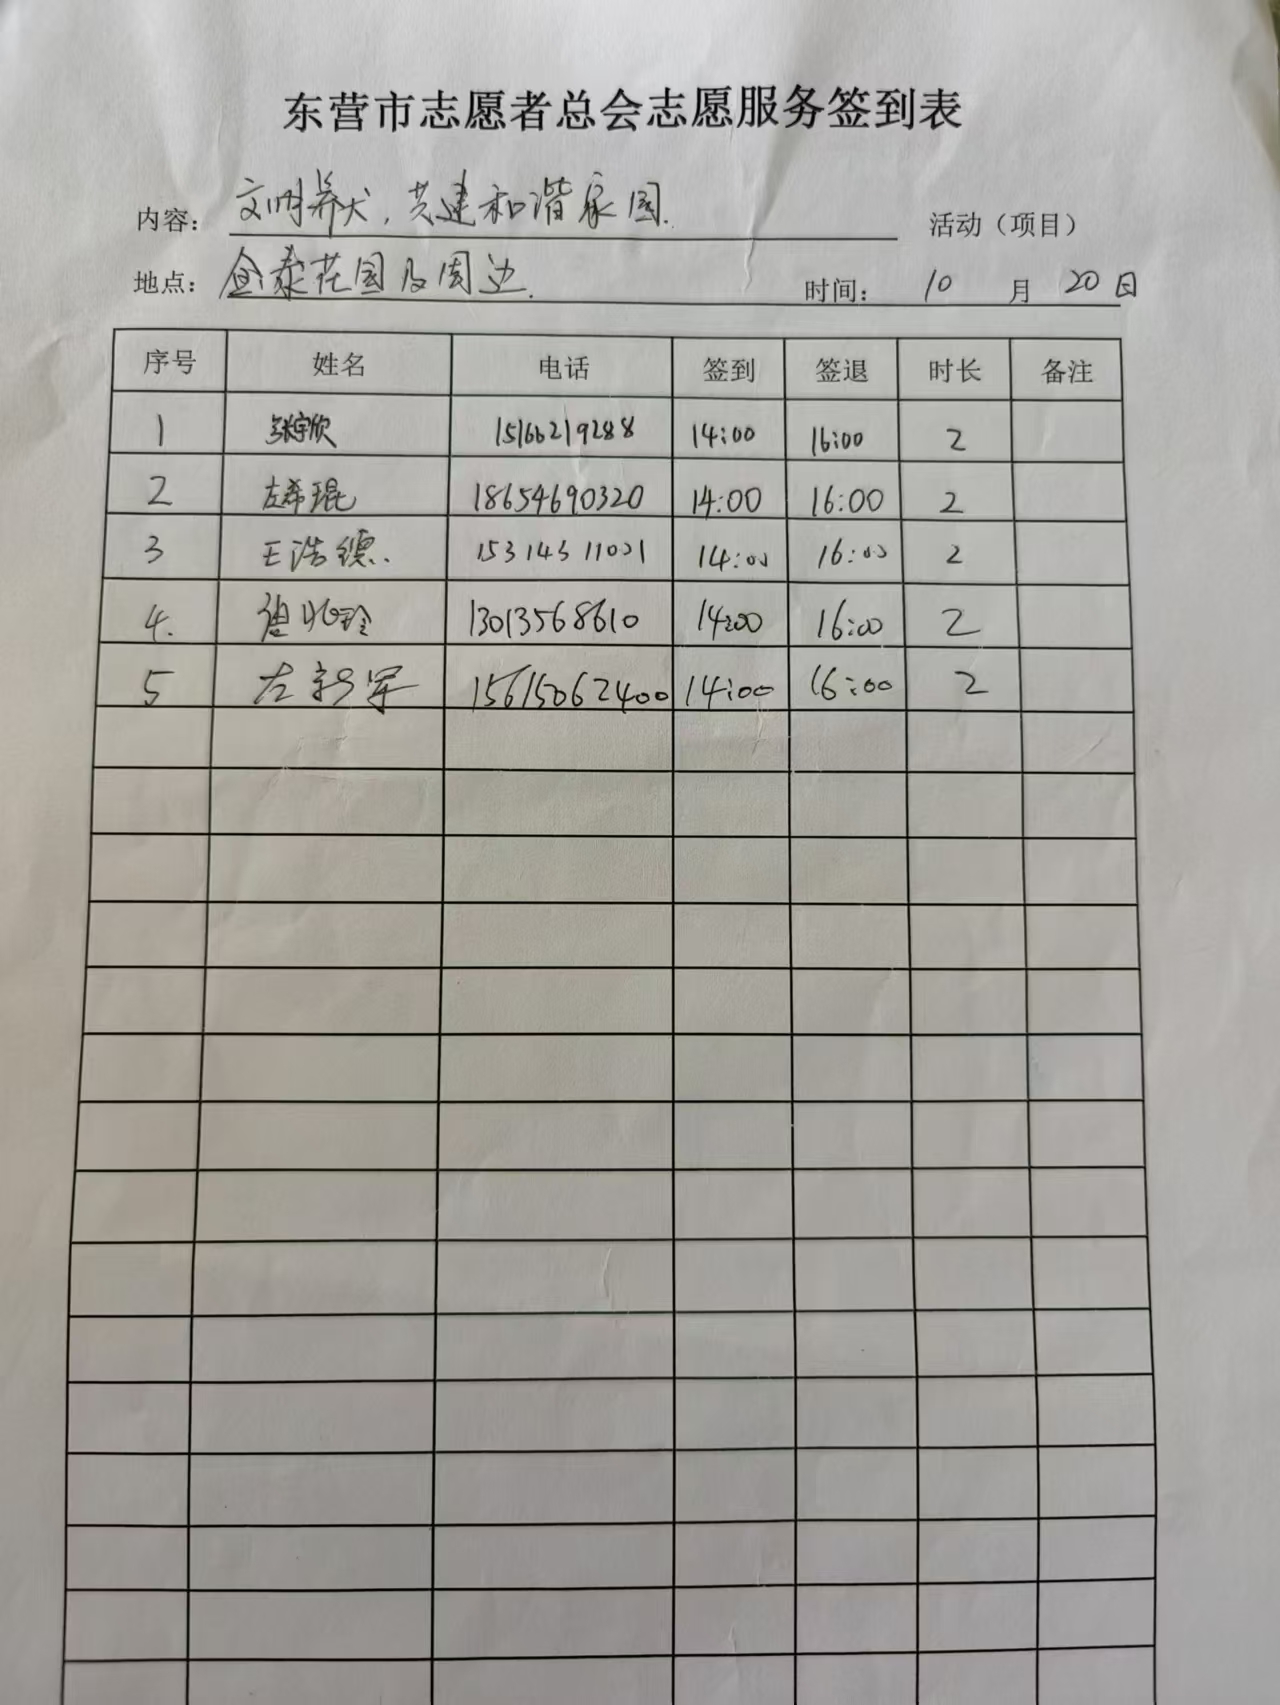 东营市志愿者总会志愿服务签到表
内容： 文明养犬，共建和谐家园. 活动（项目）
地点： 金泰花园及周边. 时间： 10 月 20 日
序号 姓名 电话 签到 签退 时长 备注
1 张宇欣 15166219288 14:00 16:00 2
2 左希琨 18654690320 14:00 16:00 2
3 王浩德. 15314311001 14:00 16:00 2
4. 13013568610 14:00 16:00 2
5 左新军 15615062400 14:00 16:00 2